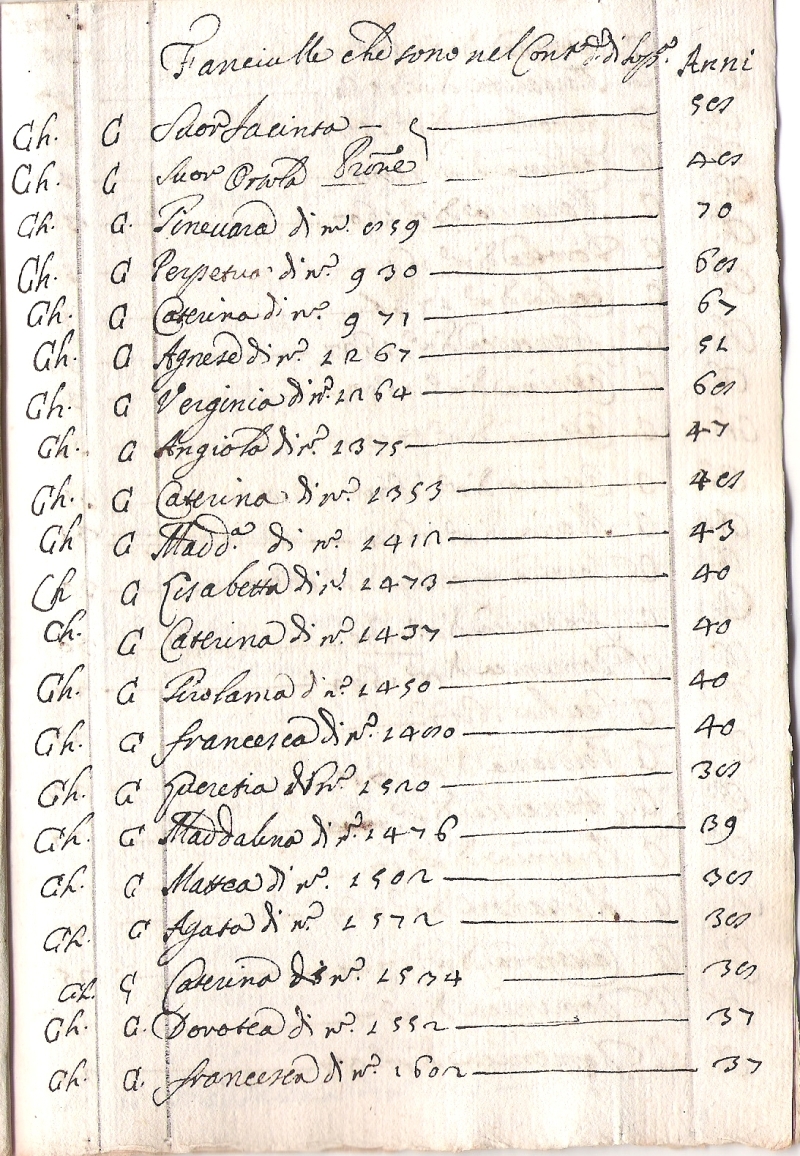 Fanciulle che sono nel Anni
Ch. G Suor Jacinta — 58
Ch. G Suor Orsola 48
Ch. G. Ginevara di n.° 859 70
Ch. G Perpetua di n.° 930 68
Ch. G Caterina di n.° 971 67
Ch. G Agnese di n.° 1267 51
Ch. G Verginia di n.° 1264 68
Ch. G Angiola di n.° 1375 47
Ch. G Caterina di n.° 1353 48
Ch G Madd.ª di n.° 1412 43
Ch G Lisabetta di n.° 1473 40
Ch. G Caterina di n.° 1437 40
Ch. G Girolama di n.° 1450 40
Ch. G francesca di n.° 1480 40
Ch. G Lucretia di n.° 1520 38
Ch. G Maddalena di n.° 1476 39
Ch. G Mattea di n.° 1502 38
Ch. G Agata di n.° 1572 38
Ch. G Caterina di n.° 1534 38
Ch. G. Dorotea di n.° 1552 37
Ch. G. francesca di n.° 1602 37